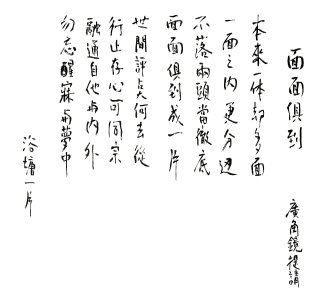 面面俱到
廣角鏡提請
本來一体却多面
一面之内更分邊
不落兩頭當徹底
面面俱到成一片
世間評点何去從
行止存心可同宗
融通自他与内外
勿忘醒寐与夢中
浴塘一片